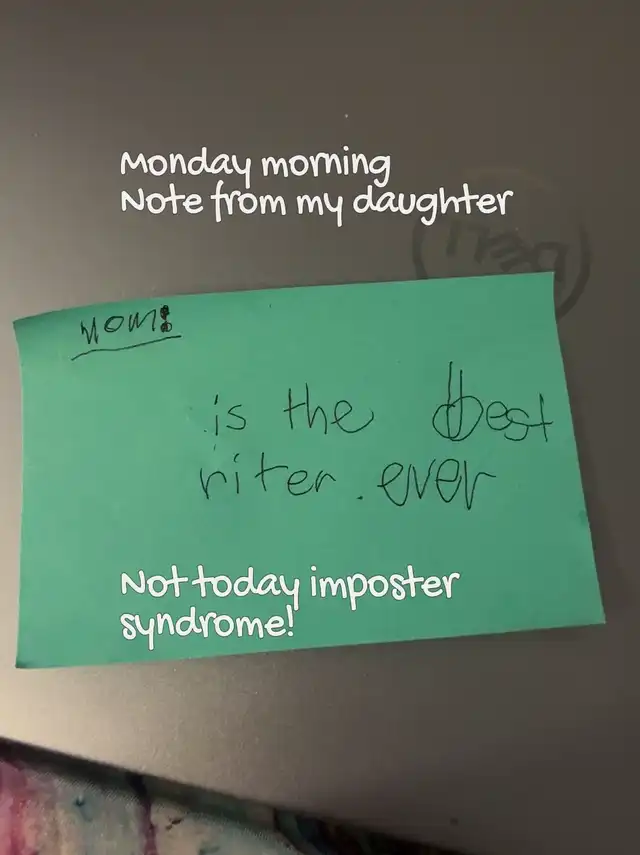 Monday morning
Note from my daughter
DELL
Mom:
is the best
riter.ever
Not today imposter
syndrome!